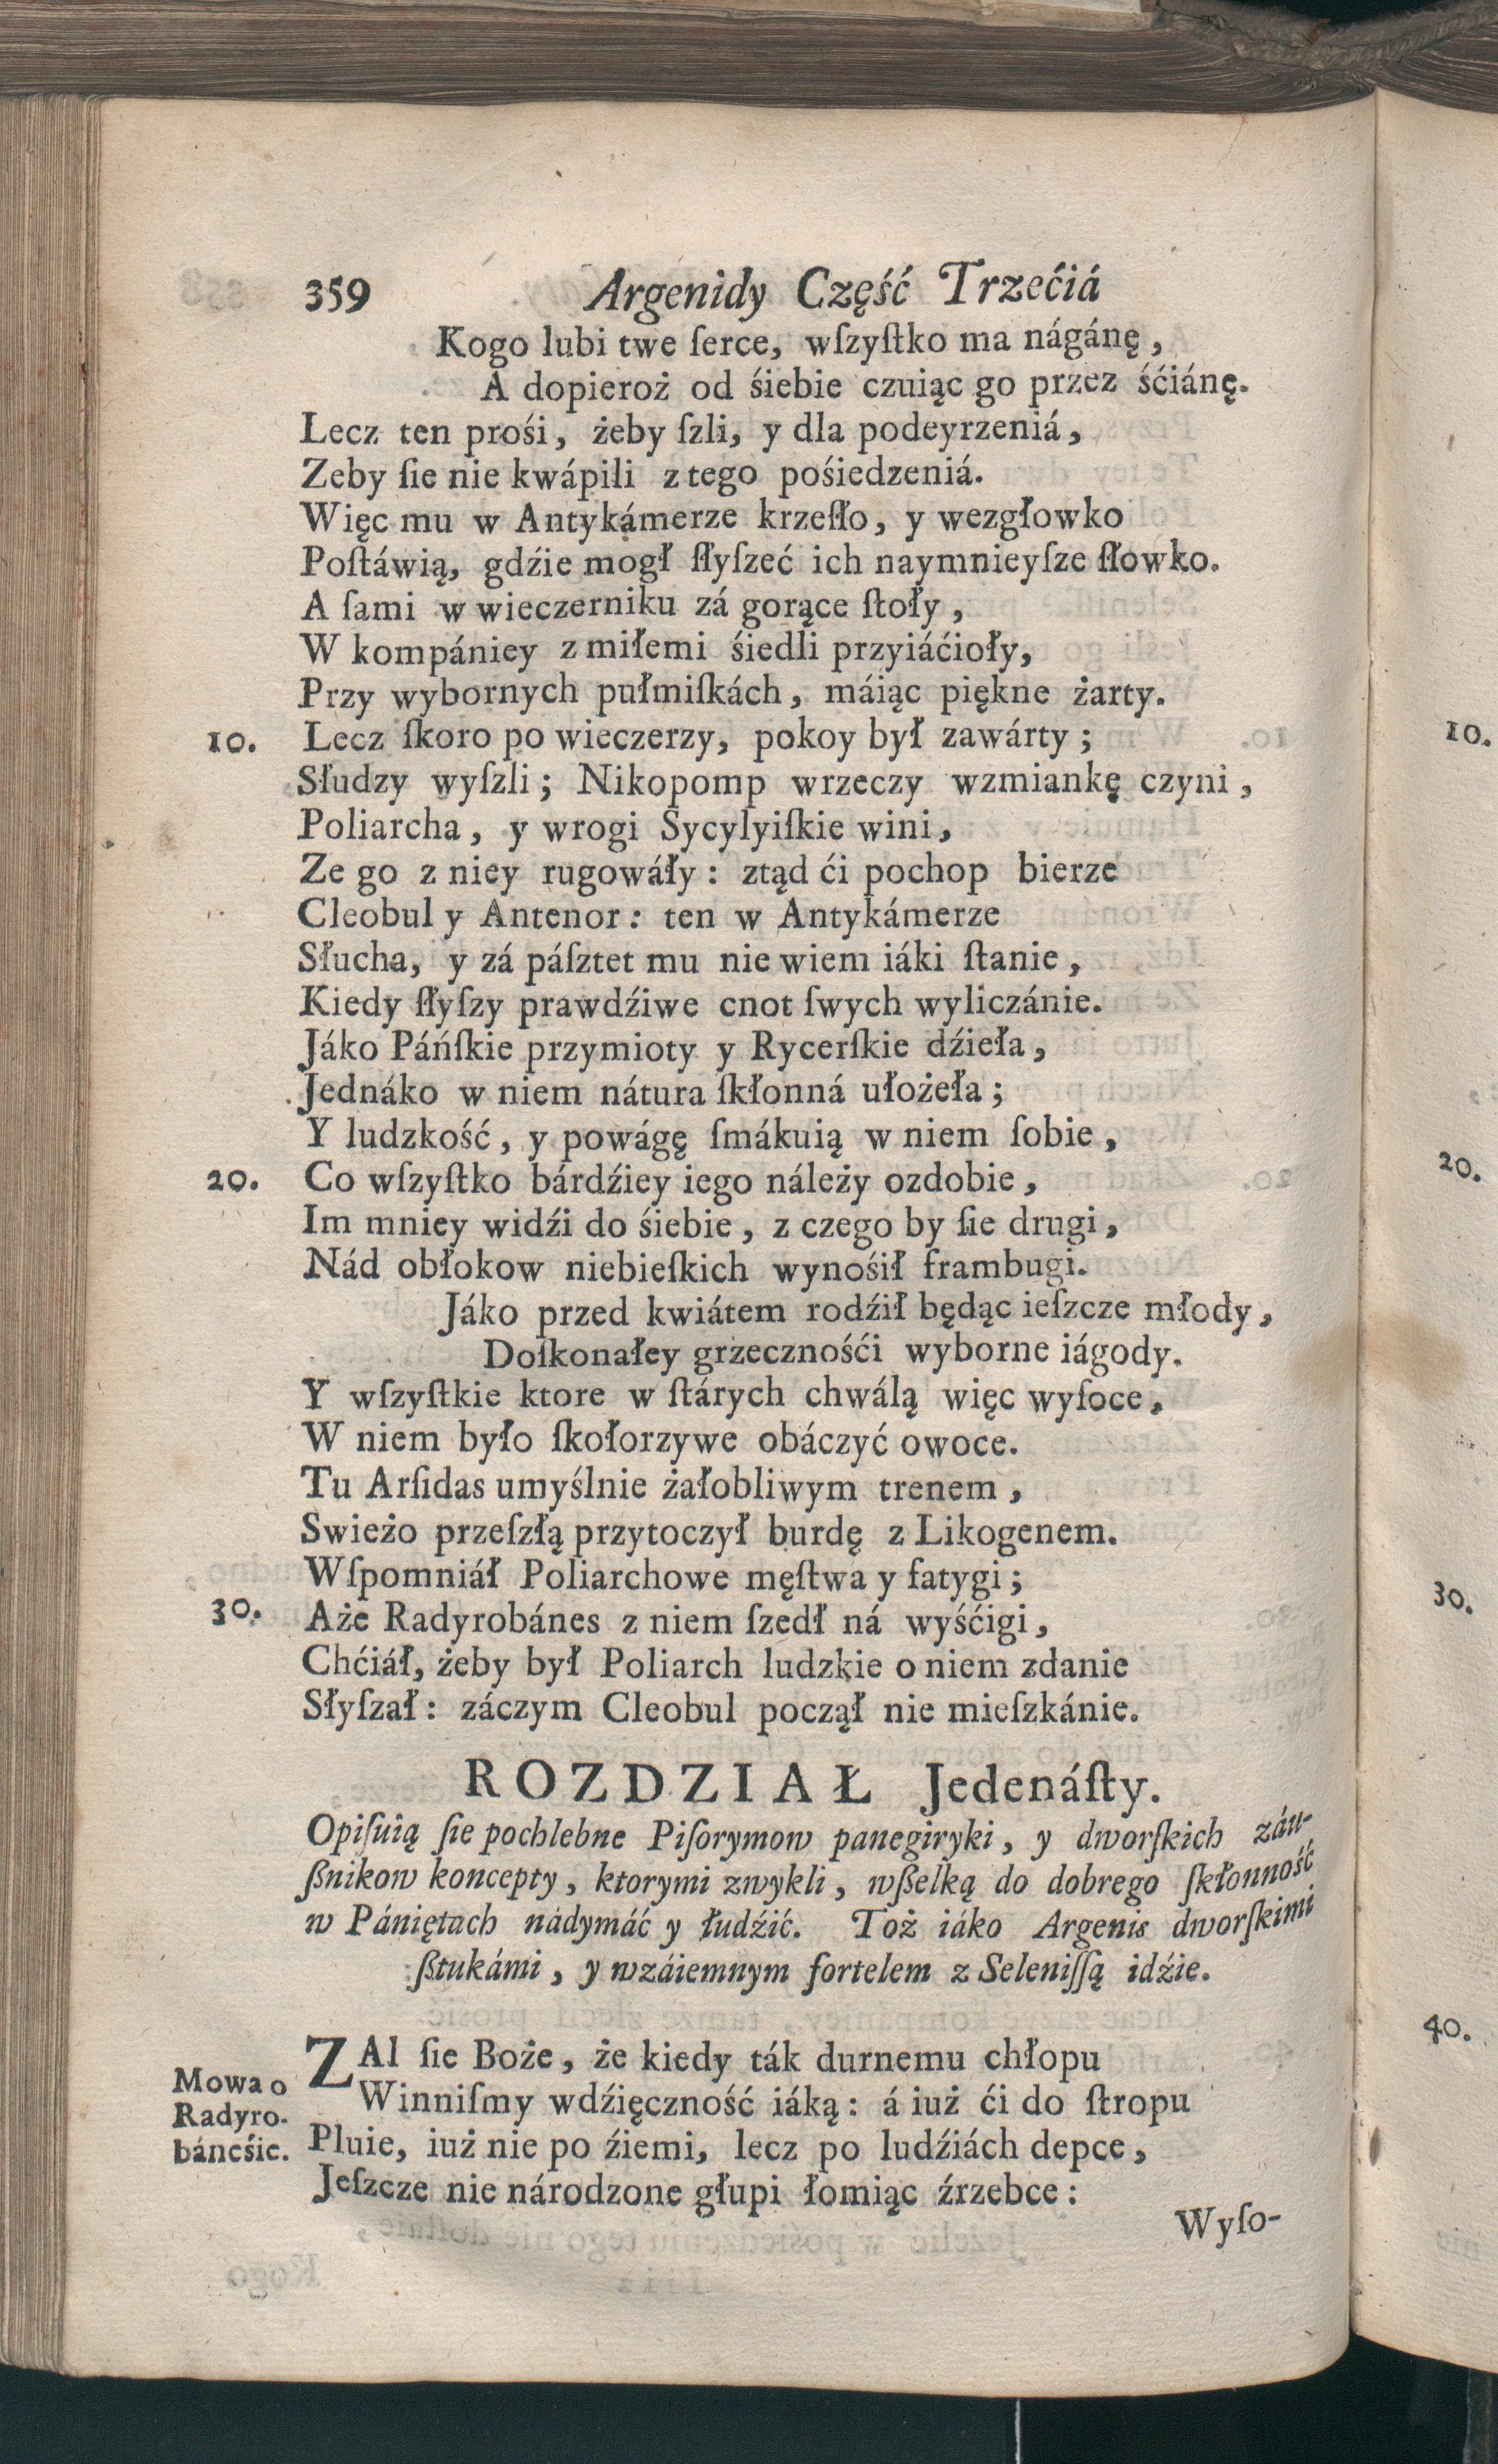 359 Argenidy Część Trzećiá
Kogo lubi twe ſerce, wſzyſtko ma nágánę,
A dopieroż od śiebie czuiąc go przez śćiánę.
Lecz ten prośi, żeby ſzli, y dla podeyrzeniá,
Zeby ſie nie kwápili z tego pośiedzeniá.
Więc mu w Antykámerze krzeſło, y wezgłowko
Poſtáwią, gdźie mogł ſłyſzeć ich naymnieyſze ſłowko.
A ſami w wieczerniku zá gorące ſtoły,
W kompániey z miłemi śiedli przyiáćioły,
Przy wybornych pułmiſkách, máiąc piękne żarty.
10. Lecz ſkoro po wieczerzy, pokoy był zawárty;
Słudzy wyſzli; Nikopomp wrzeczy wzmiankę czyni,
Poliarcha, y wrogi Sycylyiſkie wini,
Ze go z niey rugowáły: ztąd ći pochop bierze
Cleobul y Antenor: ten w Antykámerze
Słucha, y zá páſztet mu nie wiem iáki ſtanie,
Kiedy ſłyſzy prawdźiwe cnot ſwych wyliczánie.
Jáko Páńſkie przymioty y Rycerſkie dźieła,
Jednáko w niem nátura ſkłonná ułożeła;
Y ludzkość, y powágę ſmákuią w niem ſobie,
20. Co wſzyſtko bárdźiey iego náleży ozdobie,
Im mniey widźi do śiebie, z czego by ſie drugi,
Nád obłokow niebieſkich wynośił frambugi.
Jáko przed kwiátem rodźił będąc ieſzcze młody,
Doſkonałey grzecznośći wyborne iágody.
Y wſzyſtkie ktore w ſtárych chwálą więc wyſoce,
W niem było ſkołorzywe obáczyć owoce.
Tu Arſidas umyślnie żałobliwym trenem,
Swieżo przeſzłą przytoczył burdę z Likogenem.
Wſpomniáł Poliarchowe męſtwa y fatygi;
30. Aże Radyrobánes z niem ſzedł ná wyśćigi,
Chćiáł, żeby był Poliarch ludzkie o niem zdanie
Słyſzał: záczym Cleobul począł nie mieſzkánie.
ROZDZIAŁ Jedenáſty.
Opiſuią ſie pochlebne Piſorymow panegiryki, y dworſkich záu-
ßnikow koncepty, ktorymi zwykli, wßelką do dobrego ſkłonność
w Pániętach nádymáć y łudźić. Toż iáko Argenis dworſkimi
ßtukámi, y wzáiemnym fortelem z Seleniſſą idźie.
Mowa o
Radyro-
báneśie.
ZAl ſie Boże, że kiedy ták durnemu chłopu
Winniſmy wdźięczność iáką: á iuż ći do ſtropu
Pluie, iuż nie po źiemi, lecz po ludźiách depce,
Jeſzcze nie národzone głupi łomiąc źrzebce:
Wyſo-
10.
20.
30.
40.